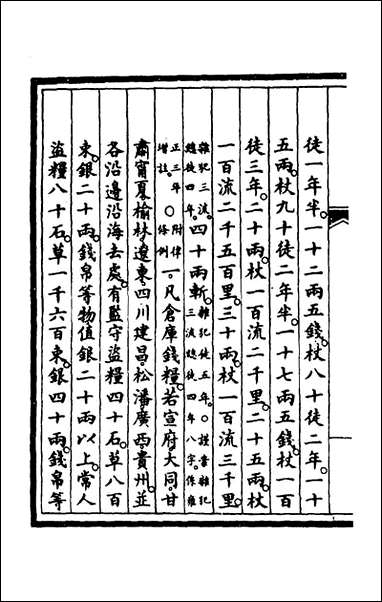 徒一年半一十二兩五錢杖八十徒二年一十
五兩杖九十徒二年半一十七兩五錢杖一百
徒三年二十兩杖一百流二千里二十五兩杖
一百流二千五百里三十兩杖一百流三千里
雜犯三流總徒四年四十兩斬雜犯徒五年○謹案雜犯三流總徒四年八字係雍
正三年增註○附律條例一凡倉庫錢糧若宣府大同甘
肅寧夏榆林遼東四川建昌松潘廣西貴州並
各沿邊沿海去處有監守盜糧四十石草八百
束銀二十兩錢帛等物值銀二十兩以上常人
盜糧八十石草一千六百束銀四十兩錢帛等